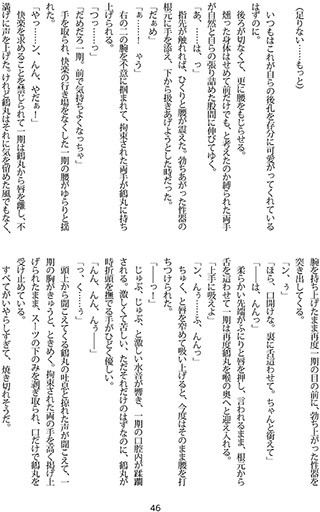 （足りない……もっと）
　いつもはこれが自らの後孔を存分に可愛がってくれている
はずのに。
　後ろが切なくて、更に腰をもじらせる。
　燻った身体はせめて前だけでも、と考えたのか縛られた両手
が自然と自らの張り詰めた股間に伸びてゆく。
「あ、……は、っ」
　指先が触れれば、ひくりと腰が震えた。勃ちあがった性器の
根元に手を添え、下から扱きあげようとした時だった。
「だぁめ」
「ぁ……、ゃう」
　右の二の腕を不意に掴まれて、拘束された両手が鶴丸に持ち
上げられる。
「つっ……っ」
「だめだろ一期。前で気持ちよくなっちゃ」
　手を取られ、快楽の行き場をなくした一期の腰がゆらりと揺
れた。
「やっ……ン、んん、やだぁ！」
　快楽を求めることを禁じられて一期は鶴丸から唇を離し、不
満げに声を上げた。けれど鶴丸はそれに気を留めた風でもなく、
腕を持ち上げたまま再度一期の目の前に、勃ち上がった性器を
突き出してくる。
「ン、ぅ」
「ほら、口開けな。裏に舌這わせて。ちゃんと衛えて」
「――は、んんっ」
　柔らかい先端がふにりと唇を押し、言われるまま、根元から
舌を這わせて一期は再度鶴丸を喉の奥へと迎え入れる。
「上手に吸えよ」
「ン、んぅ……ふ、んんっ」
　ちゅく、と唇を窄めて吸い上げると、今度はそのまま腰を打
ちつけられた。
「――っ！」
　じゅぷ、じゅぷ、と激しい水音が響き、一期の口腔内が蹂躙
される。激しくて苦しい、ただそれだけのはずなのに、鶴丸が
時折頭を撫でる手がひどく優しい。
「んん、んん、んぅ――」
「っ、く……ぅ」
　頭上から聞こえてくる鶴丸の吐息と掠れた声が聞こえて、一
期の胸がきゅうと、ときめく。拘束された両の手を高く掲げ上
げられたまま、スーツの下のみを剥ぎ取られ、口だけで鶴丸を
受け止めている。
　すべてがいやらしすぎて、焼き切れそうだ。
46